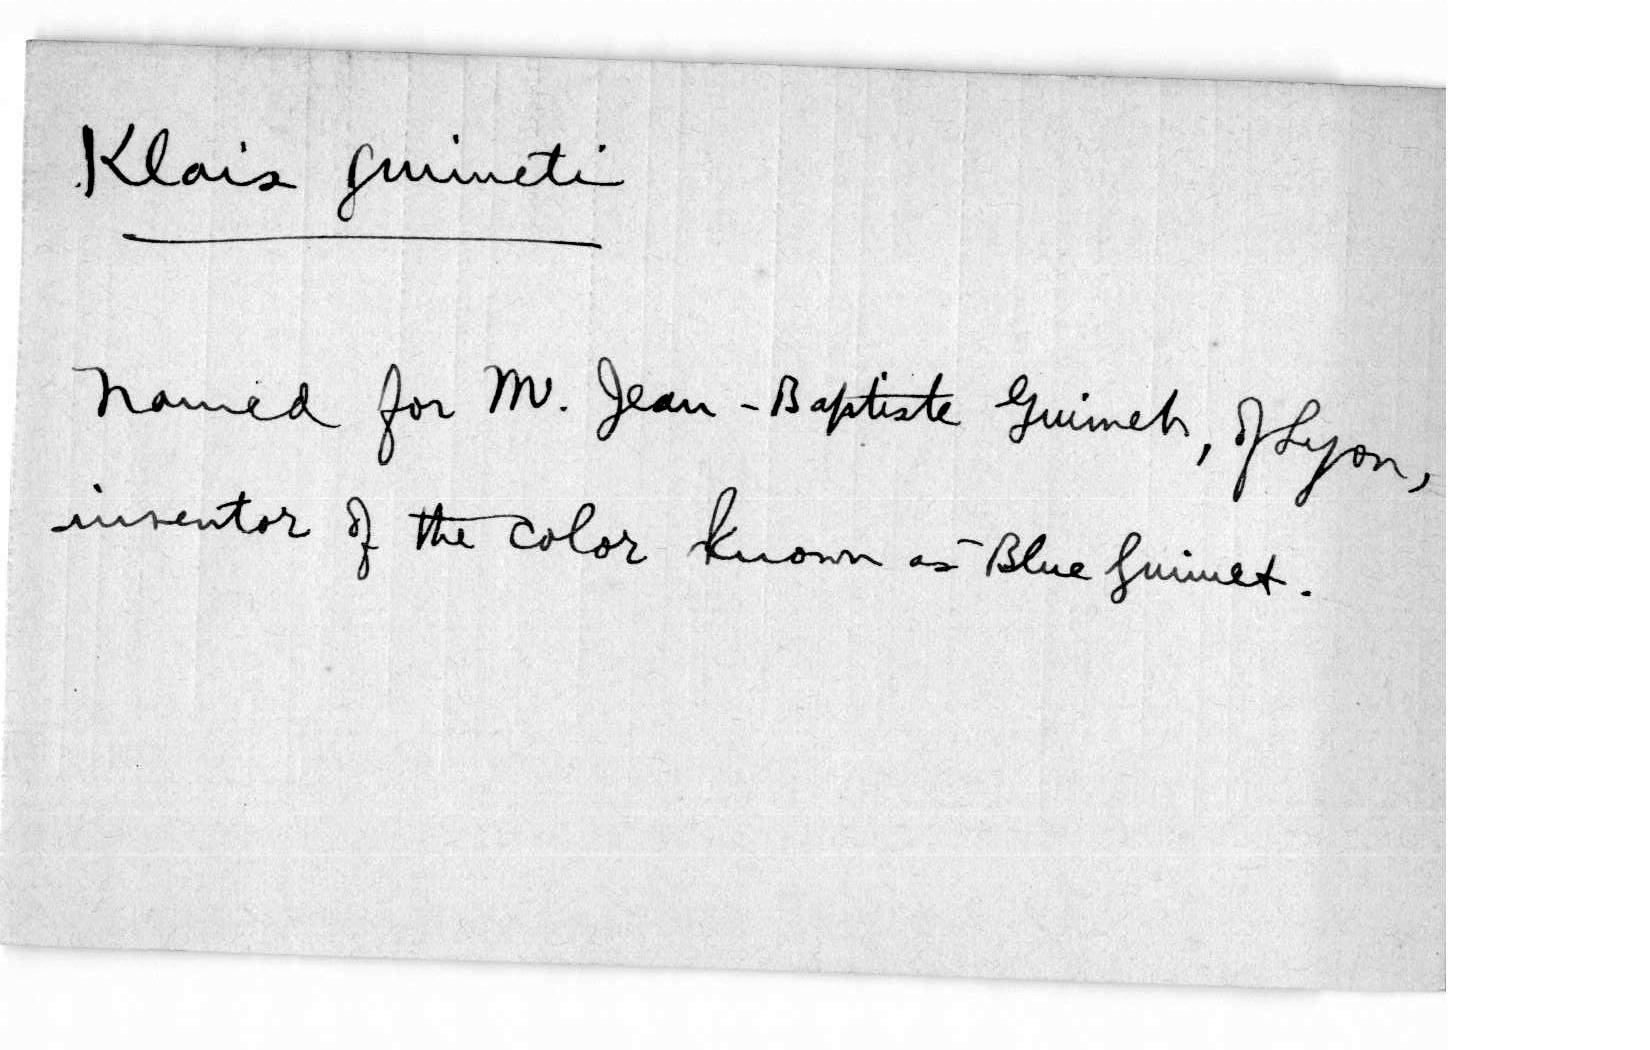 Klais guimeti
Named for M. Jean-Baptiste Guimet, of Lyon,
inventor of the color known as Blue Guimet.